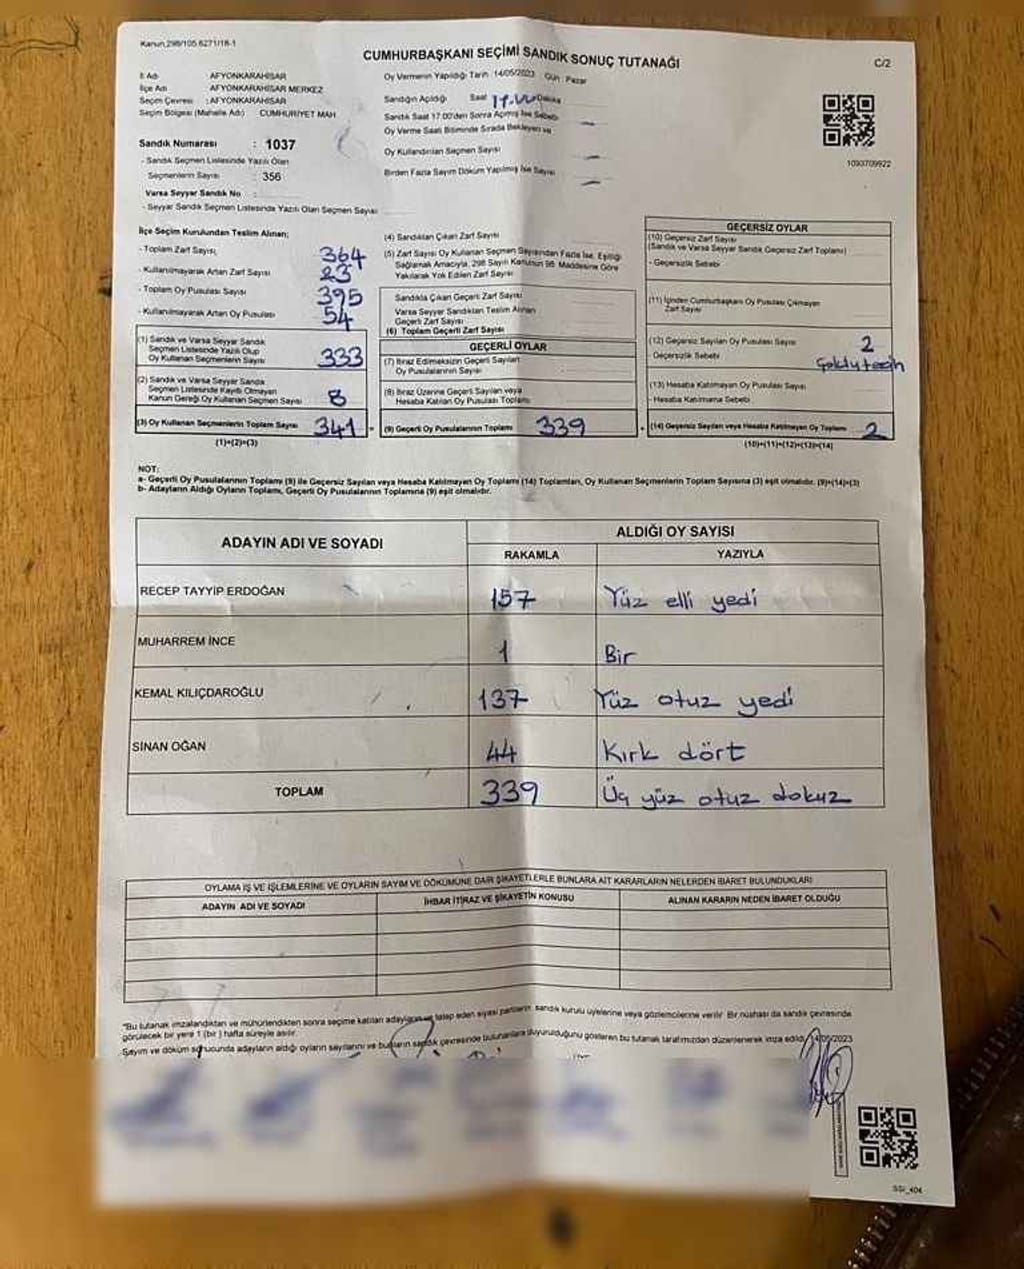 Kanun.298/105.6271/18-1
CUMHURBAŞKANI SEÇİMİ SANDIK SONUÇ TUTANAĞI
C/2
İl Adı AFYONKARAHİSAR
İlçe Adı AFYONKARAHİSAR MERKEZ
Seçim Çevresi : AFYONKARAHİSAR
Seçim Bölgesi (Mahalle Adı) CUMHURİYET MAH
Sandık Numarası : 1037
- Sandık Seçmen Listesinde Yazılı Olan
Seçmenlerin Sayısı 356
Varsa Seyyar Sandık No :
- Seyyar Sandık Seçmen Listesinde Yazılı Olan Seçmen Sayısı
Oy Vermenin Yapıldığı Tarih 14/05/2023 Gün : Pazar
Sandığın Açıldığı Saat 17.00 Dakika
Sandık Saat 17.00'den Sonra Açılmış İse Sebebi
Oy Verme Saati Bitiminde Sırada Bekleyen ve
Oy Kullandırılan Seçmen Sayısı
Birden Fazla Sayım Döküm Yapılmış İse Sayısı
1090709922
İlçe Seçim Kurulundan Teslim Alınan;
- Toplam Zarf Sayısı 364
- Kullanılmayarak Artan Zarf Sayısı 23
- Toplam Oy Pusulası Sayısı 395
- Kullanılmayarak Artan Oy Pusulası 54
(1) Sandık ve Varsa Seyyar Sandık
Seçmen Listesinde Yazılı Olup
Oy Kullanan Seçmenlerin Sayısı 333
(2) Sandık ve Varsa Seyyar Sandık
Seçmen Listesinde Kayıtlı Olmayan
Kanun Gereği Oy Kullanan Seçmen Sayısı 8
(3) Oy Kullanan Seçmenlerin Toplam Sayısı 341
(1)+(2)=(3)
(4) Sandıktan Çıkan Zarf Sayısı
(5) Zarf Sayısı Oy Kullanan Seçmen Sayısından Fazla İse, Eşitliği
Sağlamak Amacıyla, 298 Sayılı Kanunun 98. Maddesine Göre
Yakılarak Yok Edilen Zarf Sayısı
Sandıkla Çıkan Geçerli Zarf Sayısı
Varsa Seyyar Sandıktan Teslim Alınan
Geçerli Zarf Sayısı
(6) Toplam Geçerli Zarf Sayısı
GEÇERLİ OYLAR
(7) İtiraz Edilmeksizin Geçerli Sayılan
Oy Pusulalarının Sayısı
(8) İtiraz Üzerine Geçerli Sayılan veya
Hesaba Katılan Oy Pusulası Toplamı
(9) Geçerli Oy Pusulalarının Toplamı 339
GEÇERSİZ OYLAR
(10) Geçersiz Zarf Sayısı
(Sandık ve Varsa Seyyar Sandık Geçersiz Zarf Toplamı)
- Geçersizlik Sebebi
(11) İçinden Cumhurbaşkanı Oy Pusulası Çıkmayan
Zarf Sayısı
(12) Geçersiz Sayılan Oy Pusulası Sayısı 2
- Geçersizlik Sebebi
(13) Hesaba Katılmayan Oy Pusulası Sayısı
- Hesaba Katılmama Sebebi
(14) Geçersiz Sayılan veya Hesaba Katılmayan Oy Toplamı 2
(10)+(11)+(12)+(13)=(14)
NOT:
a- Geçerli Oy Pusulalarının Toplamı (9) ile Geçersiz Sayılan veya Hesaba Katılmayan Oy Toplamı (14) Toplamları, Oy Kullanan Seçmenlerin Toplam Sayısına (3) eşit olmalıdır. (9)+(14)=(3)
b- Adayların Aldığı Oyların Toplamı, Geçerli Oy Pusulalarının Toplamına (9) eşit olmalıdır.
ADAYIN ADI VE SOYADI ALDIĞI OY SAYISI
RAKAMLA YAZIYLA
RECEP TAYYİP ERDOĞAN 157 Yüz elli yedi
MUHARREM İNCE 1 Bir
KEMAL KILIÇDAROĞLU 137 Yüz otuz yedi
SİNAN OĞAN 44 Kırk dört
TOPLAM 339 Üç yüz otuz dokuz
OYLAMA İŞ VE İŞLEMLERİNE VE OYLARIN SAYIM VE DÖKÜMÜNE DAİR ŞİKAYETLERLE BUNLARA AİT KARARLARIN NELERDEN İBARET BULUNDUKLARI
ADAYIN ADI VE SOYADI İHBAR İTİRAZ VE ŞİKAYETİN KONUSU ALINAN KARARIN NEDEN İBARET OLDUĞU
"Bu tutanak imzalandıktan ve mühürlendikten sonra seçime katılan adayların ve talep eden siyasi partilerin sandık kurulu üyelerine veya gözlemcilerine verilir. Bir nüshası da sandık çevresinde
görülecek bir yere 1 (bir) hafta süreyle asılır.
Sayım ve döküm sonucunda adayların aldığı oyların sayılarını ve bunların sandık çevresinde bulunanlara duyurulduğunu gösteren bu tutanak tarafımızdan düzenlenerek imza edildi. 14/05/2023
SSI_404